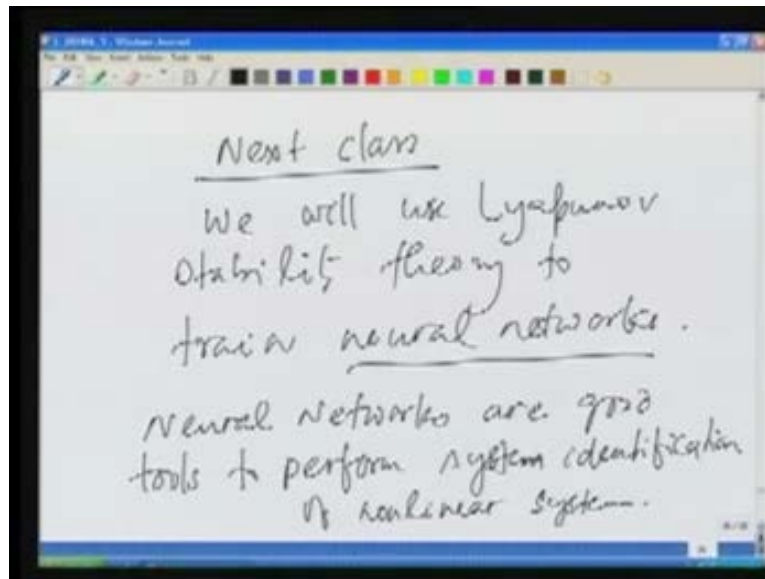 Next class
we will use Lyapunov
Stability theory to
train neural networks.
Neural Networks are good
tools to perform system identification
of nonlinear system.